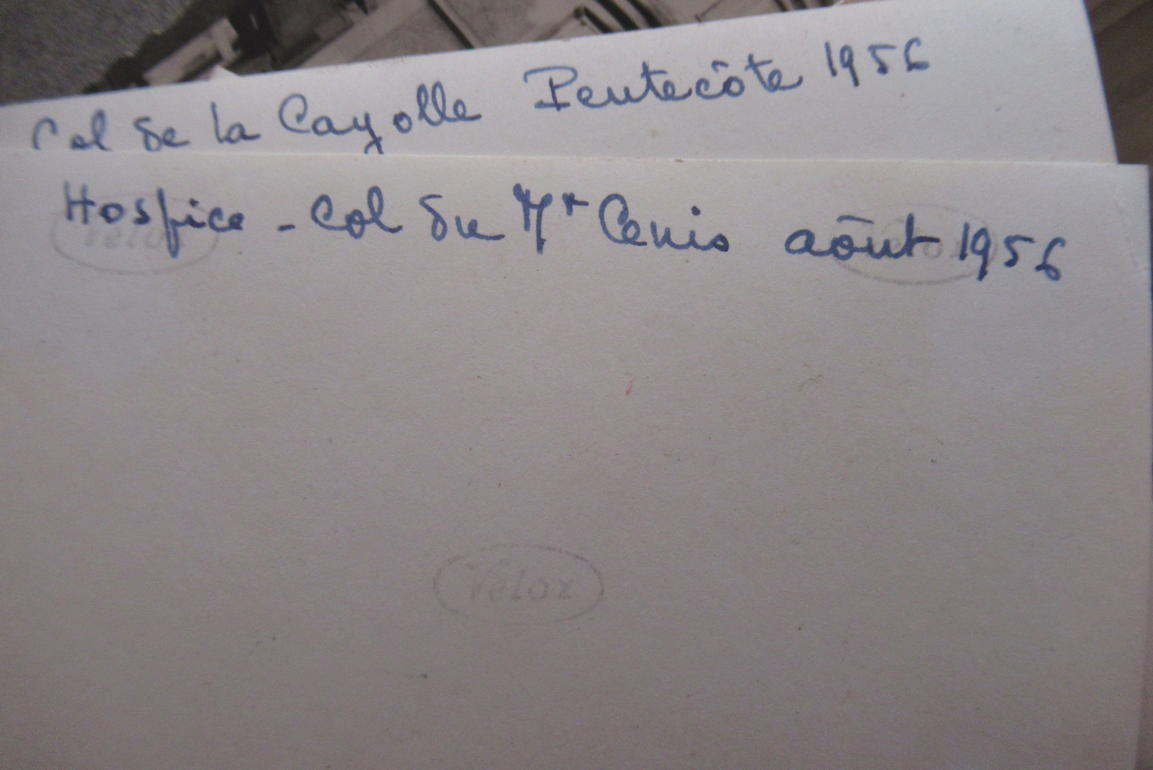 Col de la Cayolle Pentecôte 1956
Hospice - Col du Mt Cenis aôut 1956
Velox
Velox